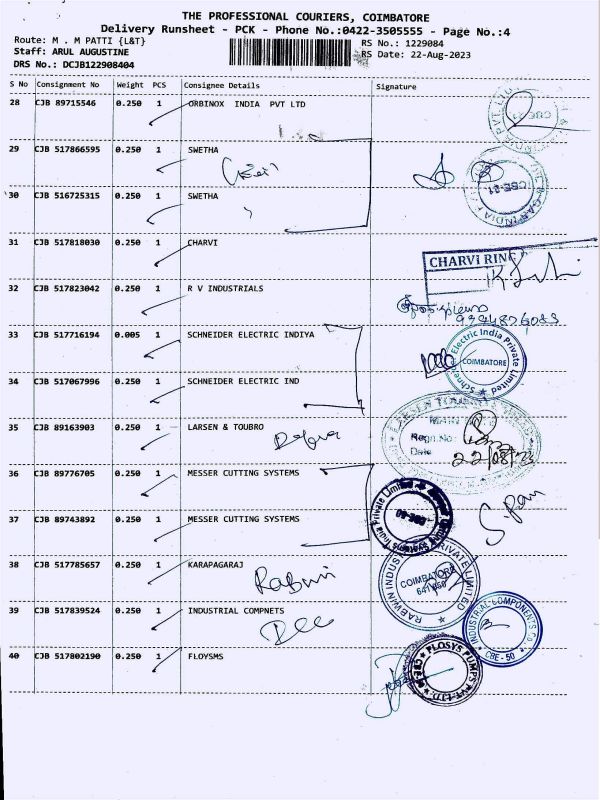 THE PROFESSIONAL COURIERS, COIMBATORE
Delivery Runsheet - PCK - Phone No.:0422-3505555 - Page No.:4
Route: M . M PATTI {L&T}
RS No.: 1229084
Staff: ARUL AUGUSTINE
RS Date: 22-Aug-2023
DRS No.: DCJB122908404
S No Consignment No Weight PCS Consignee Details Signature
28 CJB 89715546 0.250 1 ORBINOX INDIA PVT LTD
29 CJB 517866595 0.250 1 SWETHA
30 CJB 516725315 0.250 1 SWETHA
31 CJB 517818030 0.250 1 CHARVI
CHARVI RING
32 CJB 517823042 0.250 1 R V INDUSTRIALS
33 CJB 517716194 0.005 1 SCHNEIDER ELECTRIC INDIYA
Schneider Electric India Private Limited
COIMBATORE
34 CJB 517067996 0.250 1 SCHNEIDER ELECTRIC IND
35 CJB 89163903 0.250 1 LARSEN & TOUBRO
Regn.No:
Date 22/08/23
36 CJB 89776705 0.250 1 MESSER CUTTING SYSTEMS
37 CJB 89743892 0.250 1 MESSER CUTTING SYSTEMS
38 CJB 517785657 0.250 1 KARAPAGARAJ
RABWIN INDUSTRIES PRIVATE LIMITED
COIMBATORE
39 CJB 517839524 0.250 1 INDUSTRIAL COMPNETS
INDUSTRIAL COMPONENTS
CBE - 50
40 CJB 517802190 0.250 1 FLOYSMS
FLOSYS PUMPS PVT. LTD